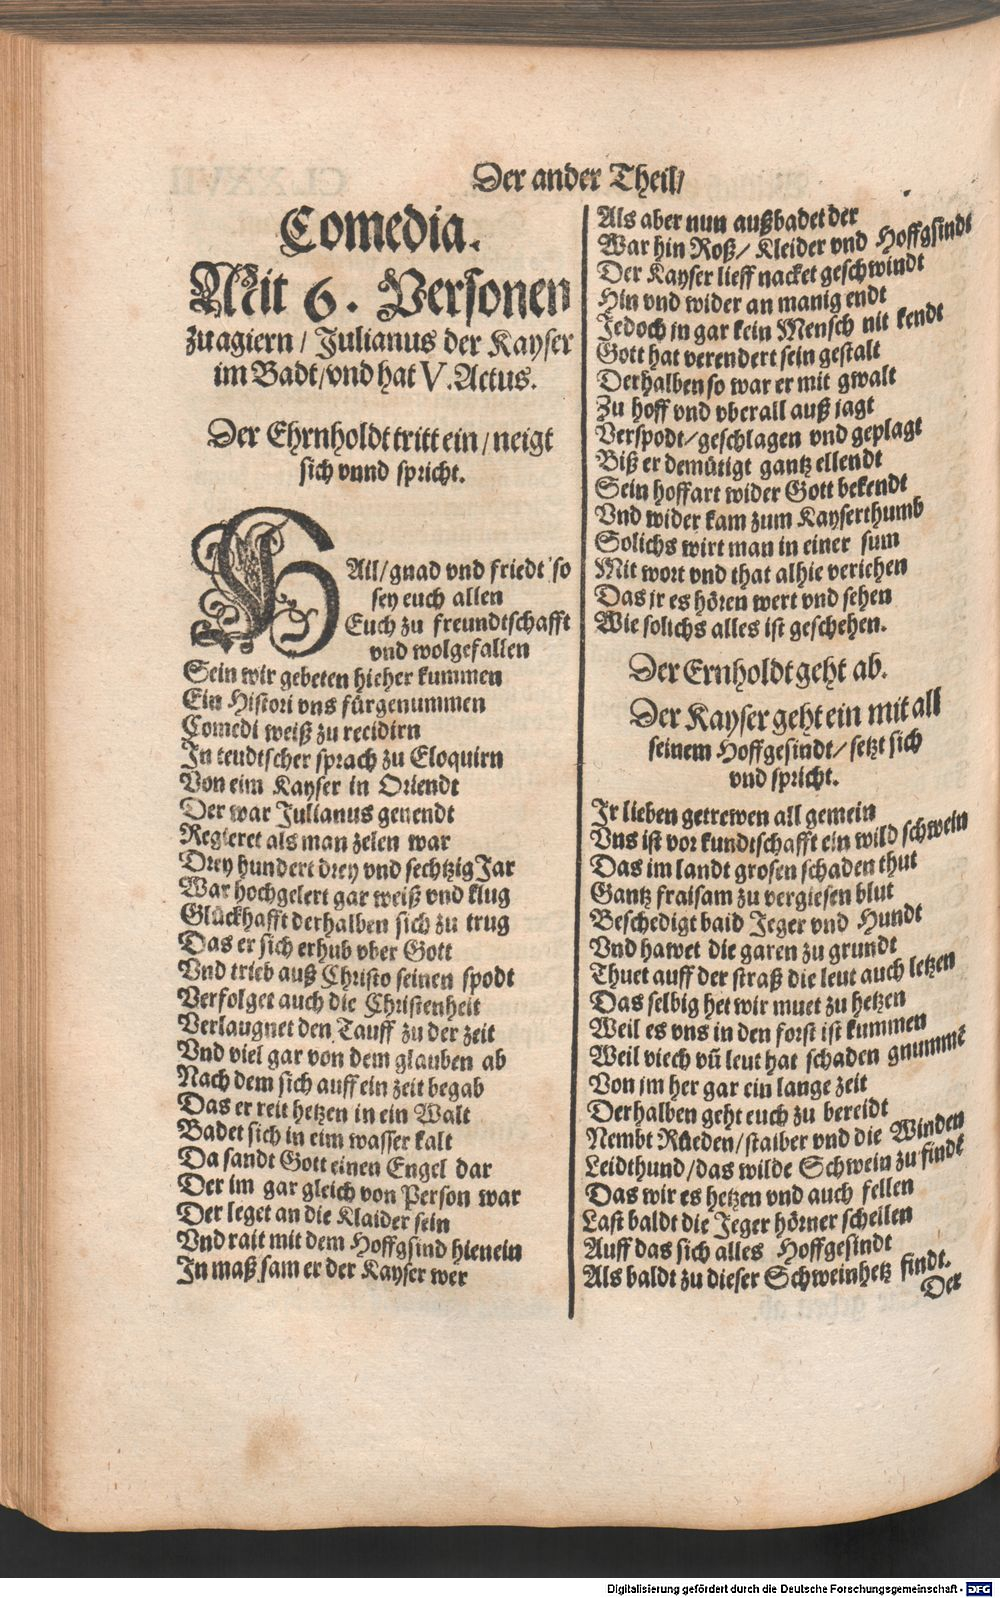 Der ander Theil/
Comedia.
Mit 6. Personen
zu agiern / Julianus der Kayser
im Badt/vnd hat V. Actus.
Der Ehrnholdt tritt ein / neigt
sich vnnd spricht.
HAil/gnad vnd friedt so
sey euch allen
Euch zu freundtschafft
vnd wolgefallen
Sein wir gebeten hieher kummen
Ein Histori vns fürgenummen
Comedi weiß zu recidirn
In teudtscher sprach zu Eloquirn
Von eim Kayser in Oriendt
Der war Julianus genendt
Regieret als man zelen war
Drey hundert drey vnd sechtzig Jar
War hochgelert gar weiß vnd klug
Glückhafft derhalben sich zu trug
Das er sich erhub vber Gott
Vnd trieb auß Christo seinen spodt
Verfolget auch die Christenheit
Verlaugnet den Tauff zu der zeit
Vnd viel gar von dem glauben ab
Nach dem sich auff ein zeit begab
Das er reit hetzen in ein Walt
Badet sich in eim wasser kalt
Da sandt Gott einen Engel dar
Der im gar gleich von Person war
Der leget an die Klaider sein
Vnd rait mit dem Hoffgsind hienein
In maß sam er der Kayser wer
Als aber nun außbadet der
War hin Roß/ Kleider vnd Hoffgsindt
Der Kayser lieff nacket geschwindt
Hin vnd wider an manig endt
Jedoch jn gar kein Mensch nit kendt
Gott hat verendert sein gestalt
Derhalben so war er mit gwalt
Zu hoff vnd vberall auß jagt
Verspodt/geschlagen vnd geplagt
Biß er demütigt gantz ellendt
Sein hoffart wider Gott bekendt
Vnd wider kam zum Kayserthumb
Solichs wirt man in einer sum
Mit wort vnd that alhie veriehen
Das jr es hören wert vnd sehen
Wie solichs alles ist geschehen.
Der Ernholdt geht ab.
Der Kayser geht ein mit all
seinem Hoffgesindt/ setzt sich
vnd spricht.
Ir lieben getrewen all gemein
Vns ist vor kundtschafft ein wild schwein
Das im landt grosen schaden thut
Gantz fraisam zu vergiesen blut
Beschedigt baid Jeger vnd Hundt
Vnd hawet die garen zu grundt
Thuet auff der straß die leut auch letzen
Das selbig het wir muet zu hetzen
Weil es vns in den forst ist kummen
Weil viech vñ leut hat schaden gnumme
Von jm her gar ein lange zeit
Derhalben geht euch zu bereidt
Nembt Rüeden/staiber vnd die Winden
Leidthund/das wilde Schwein zu findt
Das wir es hetzen vnd auch fellen
Last baldt die Jeger hörner schellen
Auff das sich alles Hoffgesindt
Als baldt zu dieser Schweinhetz findt.
Der
Digitalisierung gefördert durch die Deutsche Forschungsgemeinschaft - DFG